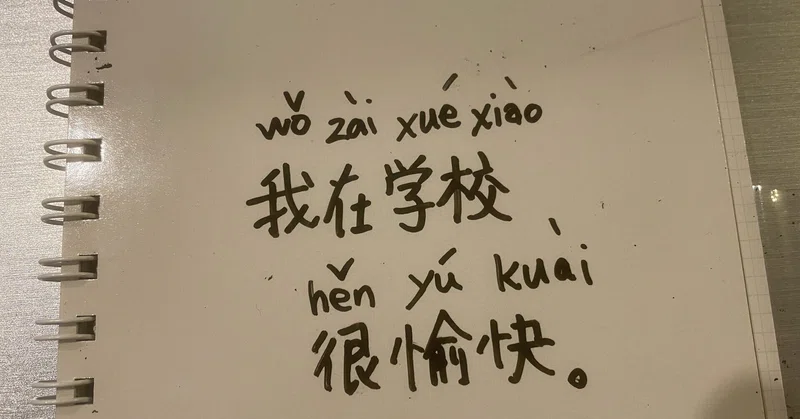 wǒ zài xué xiào
我在学校
hěn yú kuài
很愉快。